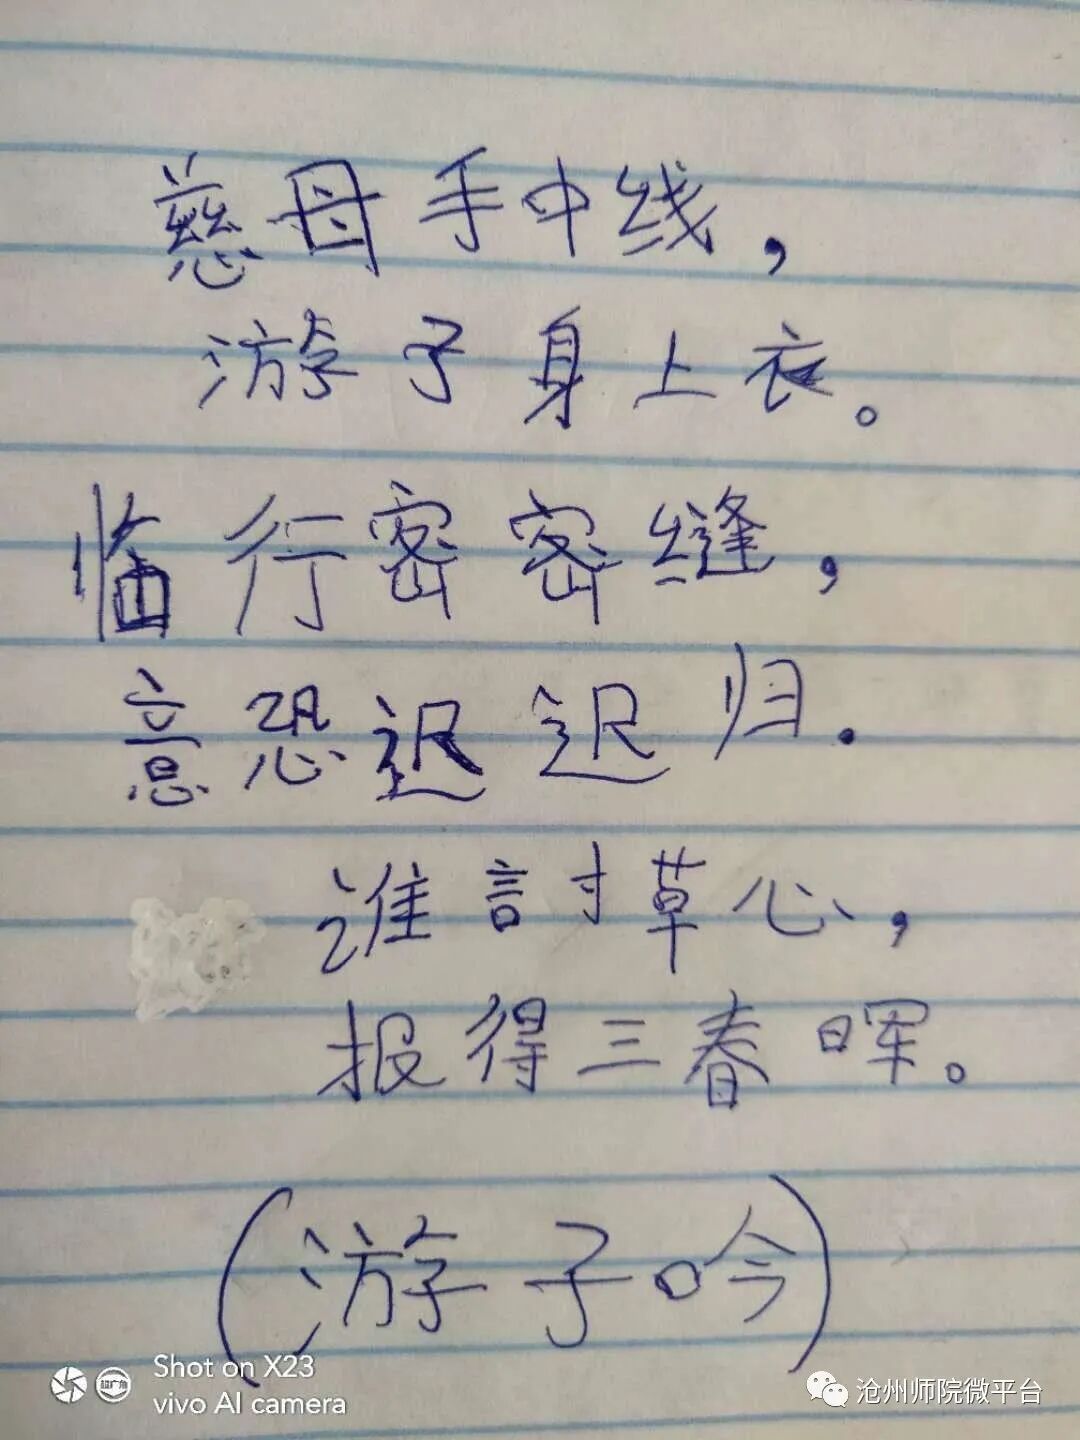 慈母手中线，
游子身上衣。
临行密密缝，
意恐迟迟归.
谁討草心，
报得三春晖。
(游子吟)
Shot on X23
vivo AI camera
超广角
沧州师院微平台